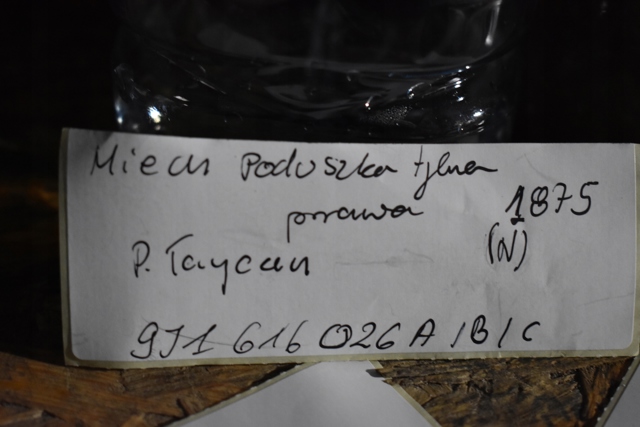 Miech Poduszka tylna
prawa 1875
P. Taycan (N)
9J1 616 026 A /B/C